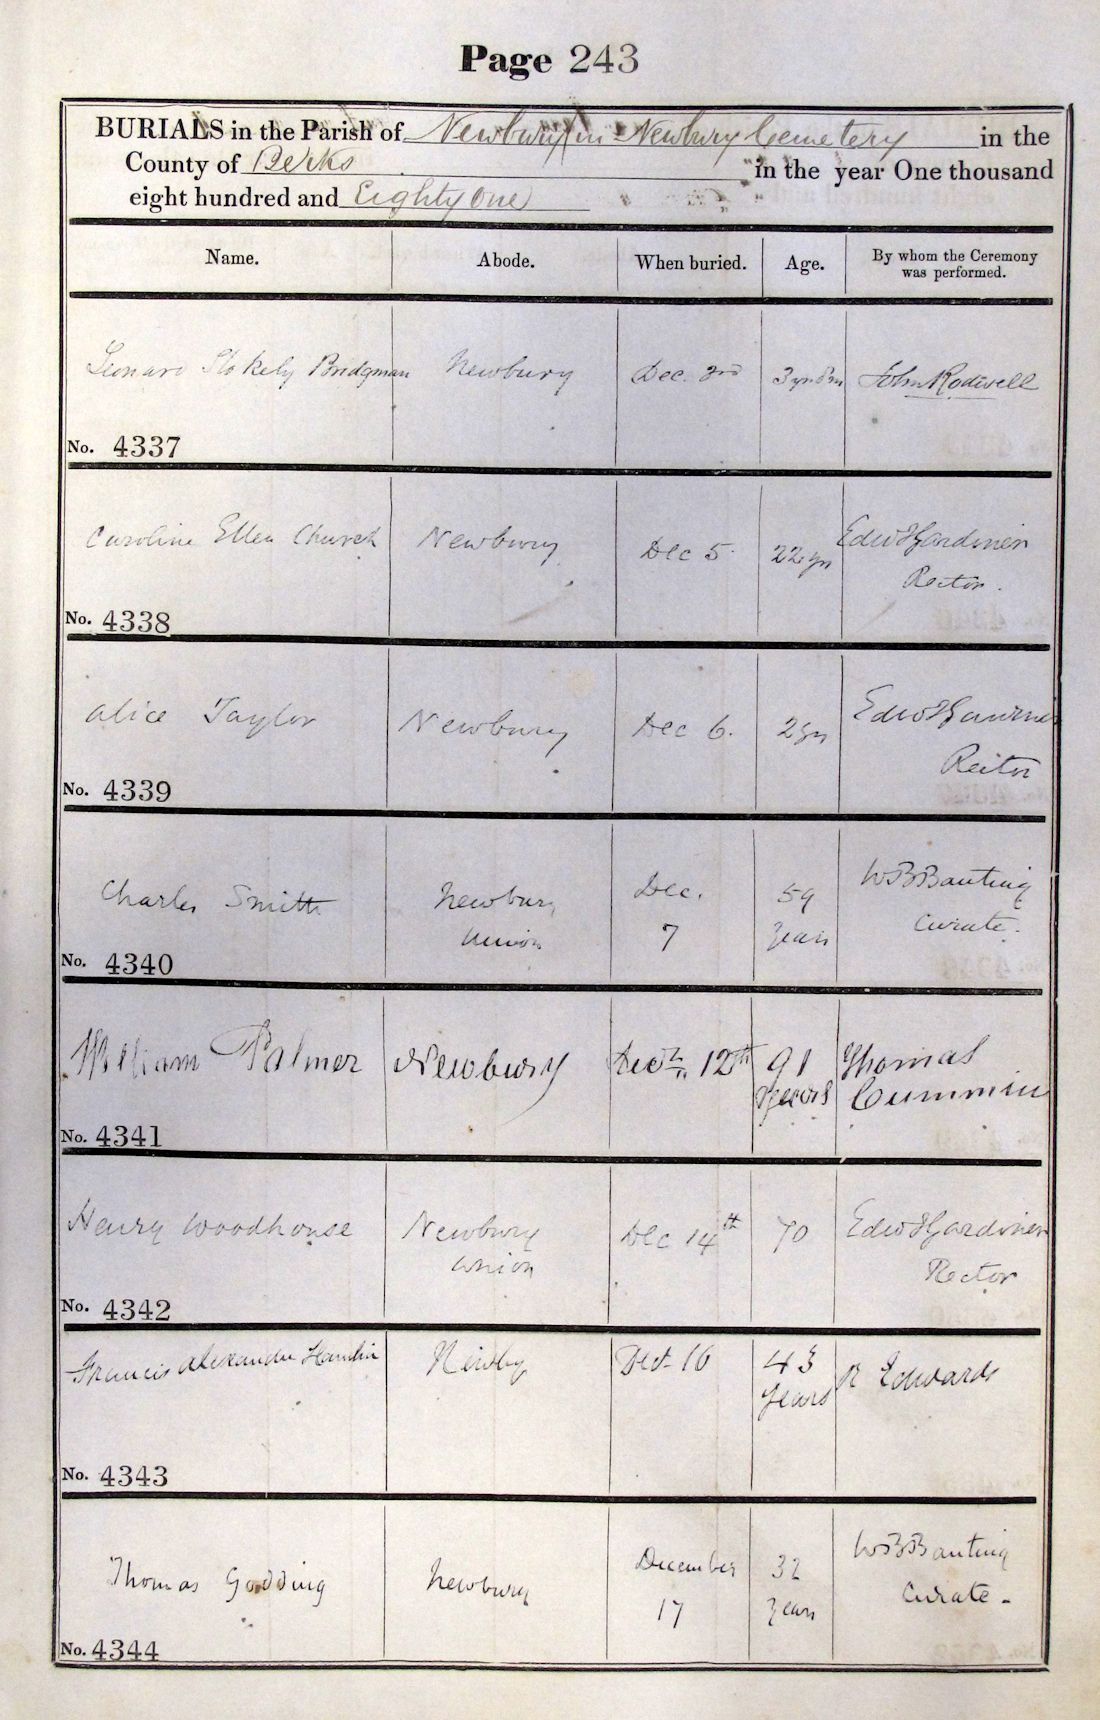 Page 243
BURIALS in the Parish of Newbury in Newbury Cemetery in the
County of Berks in the year One thousand
eight hundred and Eighty One
Name. Abode. When buried. Age. By whom the Ceremony was performed.
Leonard Stokely Bridgman Newbury Dec. 3rd 3 yrs John Rodwell
No. 4337
Caroline Ellen Church Newbury Dec 5. 22 yrs Edwd Gardiner
Rector.
No. 4338
Alice Taylor Newbury Dec 6. 2 yrs Edwd Gardiner
Rector
No. 4339
Charles Smith Newbury Dec. 59 W B Banting
Union 7 years Curate.
No. 4340
William Palmer Newbury Decr. 12th 91 Thomas
years Cummin
No. 4341
Henry Woodhouse Newbury Dec 14th 70 Edwd Gardiner
Union Rector
No. 4342
Francis Alexander Hamlin Newby Dec 16 43 R Edwards
years
No. 4343
Thomas Godding Newbury December 32 W B Banting
17 years Curate.
No. 4344